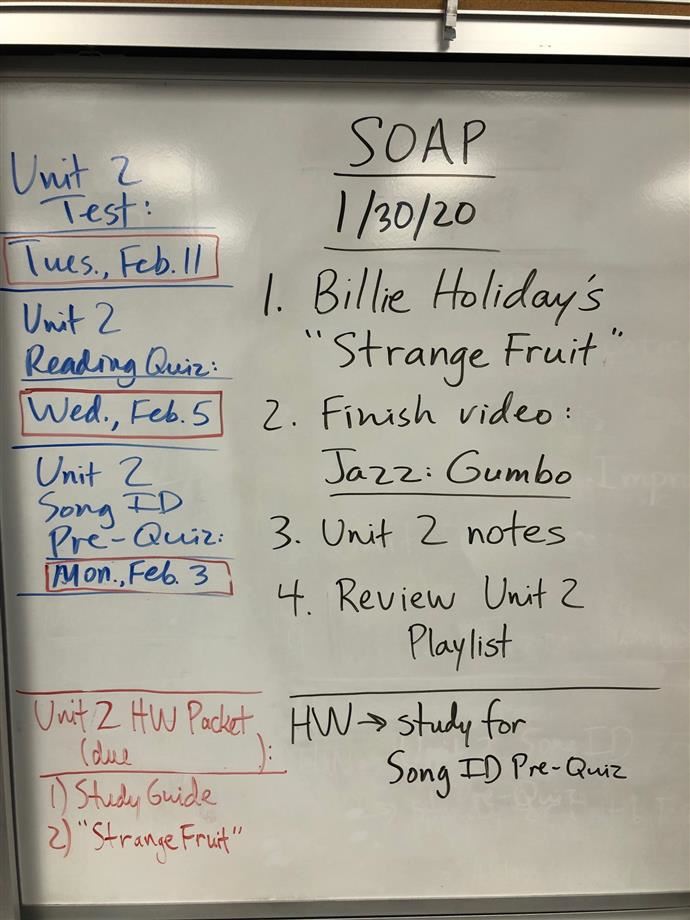 SOAP
1/30/20
1. Billie Holiday's
"Strange Fruit"
2. Finish video:
Jazz: Gumbo
3. Unit 2 notes
4. Review Unit 2
Playlist
HW → study for
Song ID Pre-Quiz
Unit 2
Test:
Tues., Feb. 11
Unit 2
Reading Quiz:
Wed., Feb. 5
Unit 2
Song ID
Pre-Quiz:
Mon., Feb. 3
Unit 2 HW Packet
(due ):
1) Study Guide
2) "Strange Fruit"